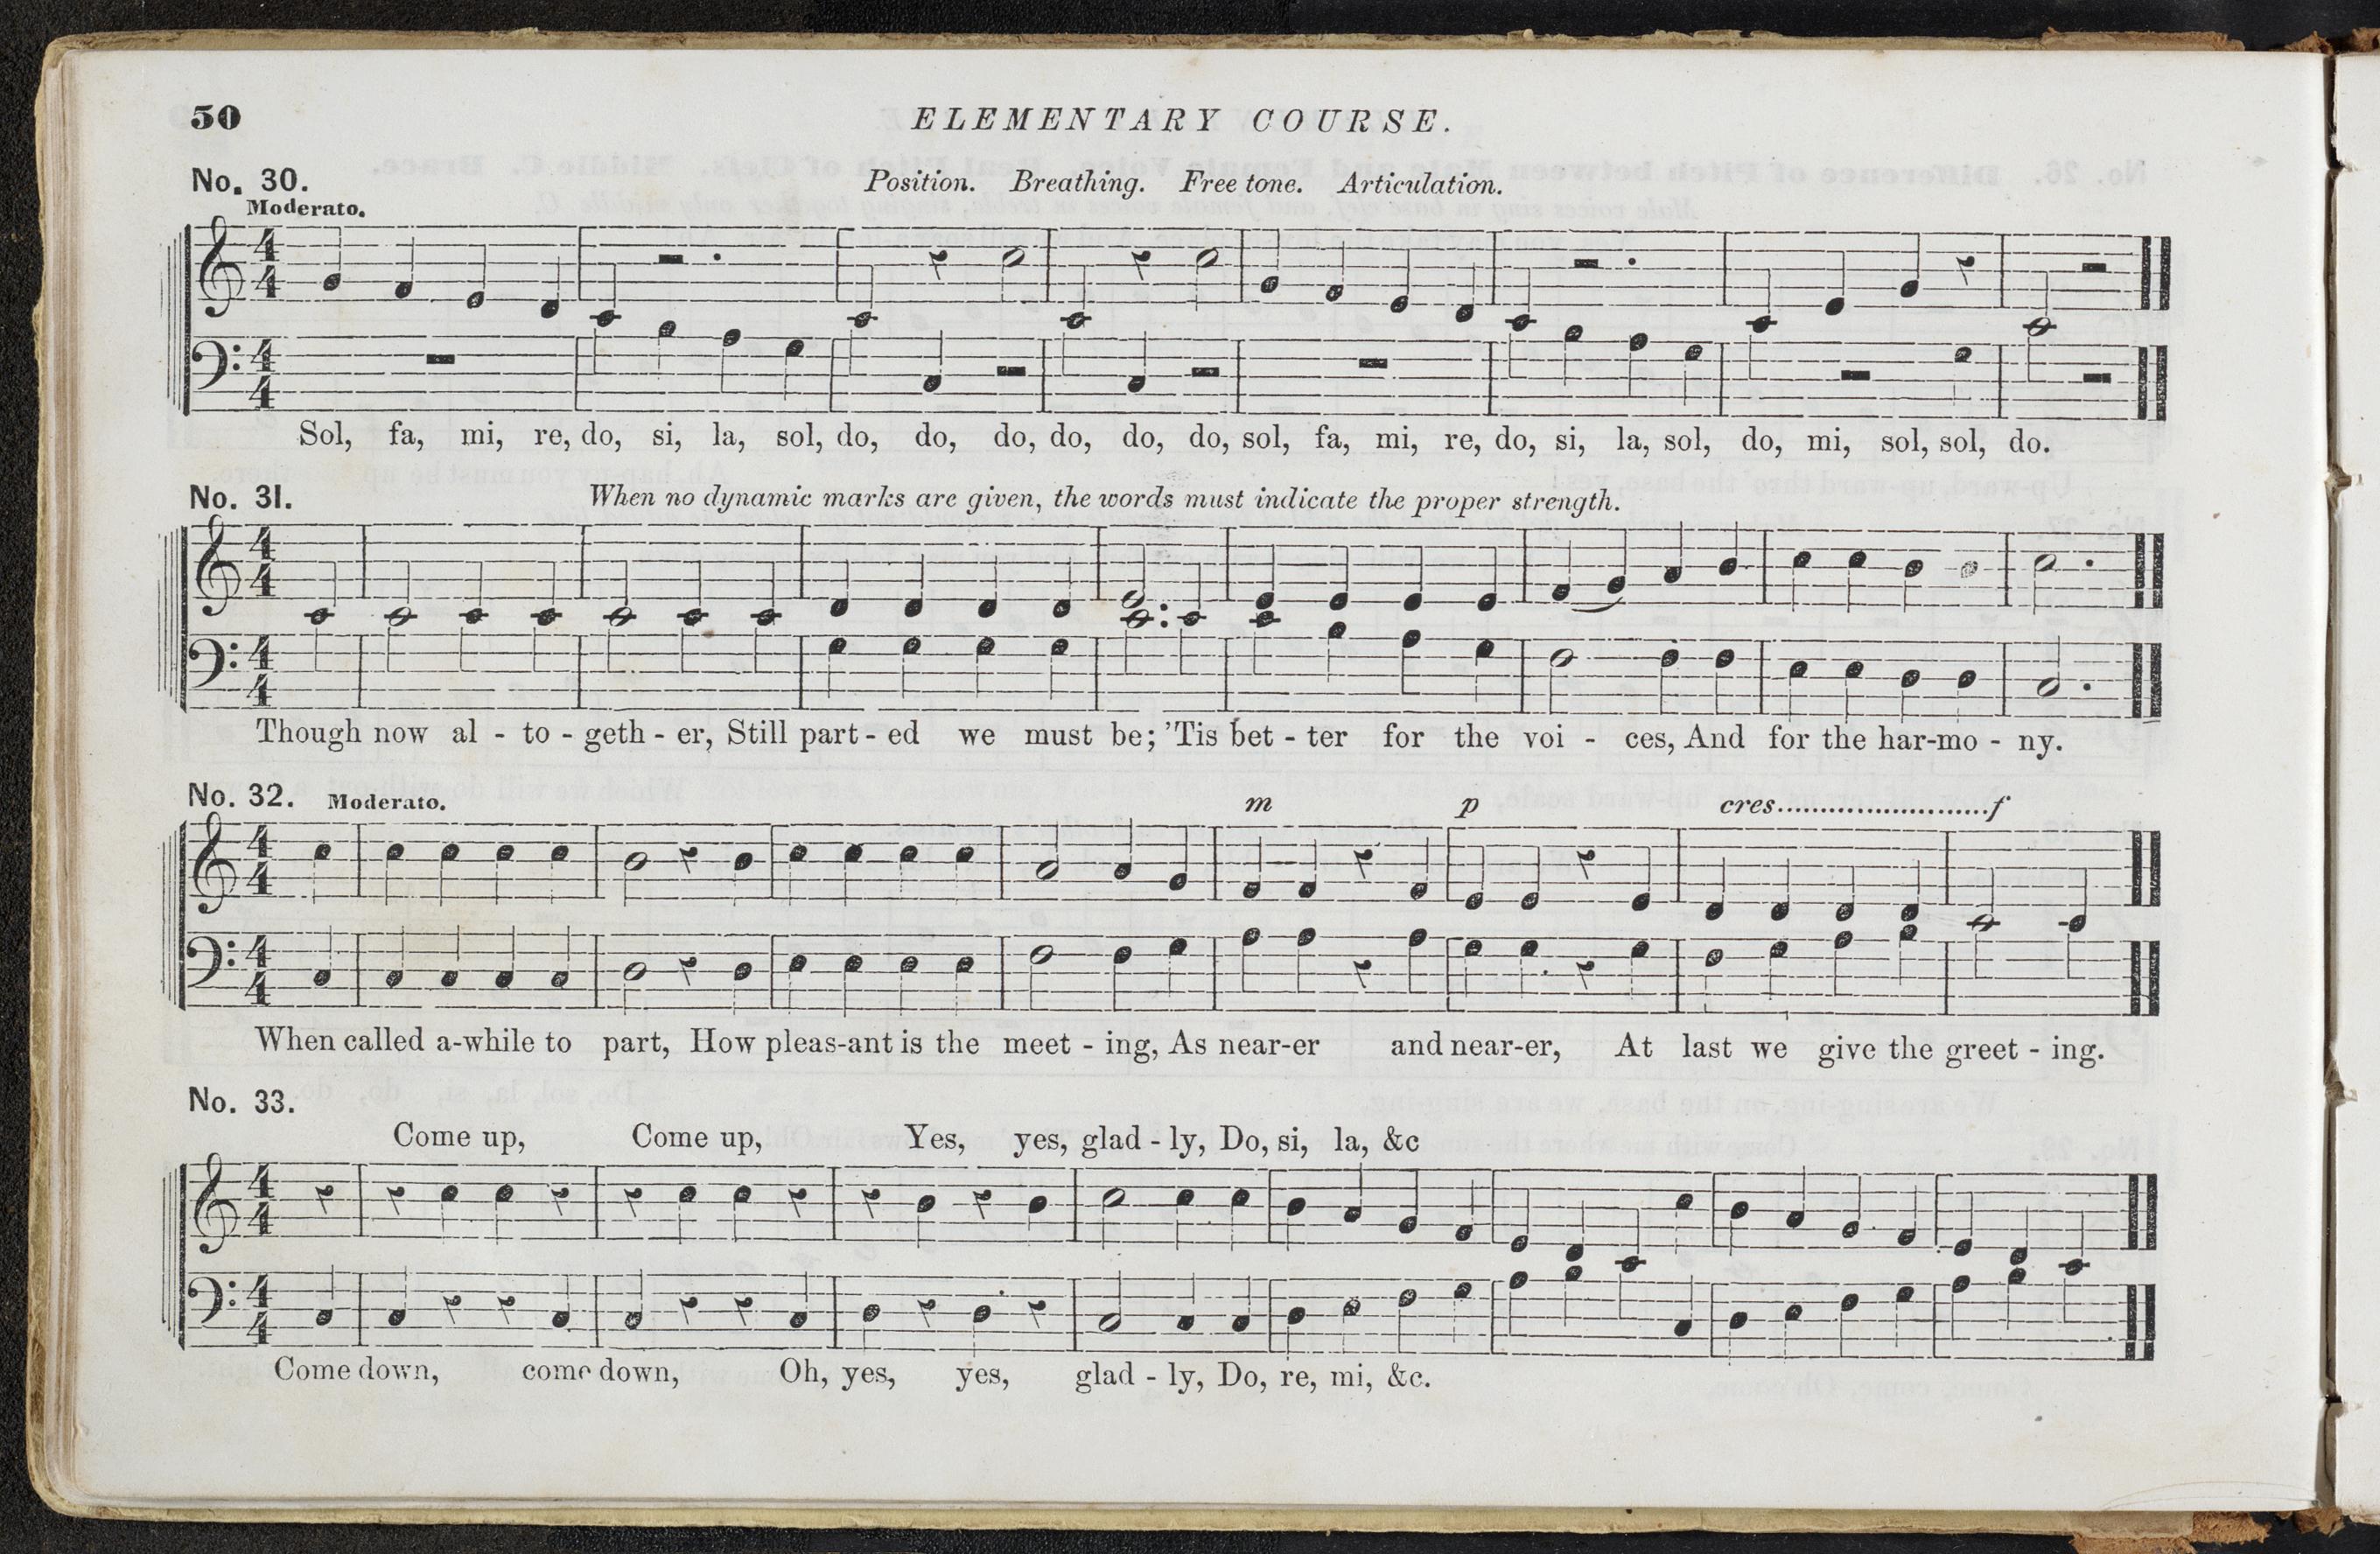 50
ELEMENTARY COURSE.
No. 30.
Position. Breathing. Free tone. Articulation.
Moderato.
4 4
4 4
Sol, fa, mi, re, do, si, la, sol, do, do, do, do, do, do, sol, fa, mi, re, do, si, la, sol, do, mi, sol, sol, do.
No. 31. When no dynamic marks are given, the words must indicate the proper strength.
4 4
4 4
Though now al - to - geth - er, Still part - ed we must be; 'Tis bet - ter for the voi - ces, And for the har-mo - ny.
No. 32. Moderato. m p cres.......................f
4 4
4 4
When called a-while to part, How pleas-ant is the meet - ing, As near-er and near-er, At last we give the greet - ing.
No. 33.
Come up, Come up, Yes, yes, glad - ly, Do, si, la, &c
4 4
4 4
Come down, come down, Oh, yes, yes, glad - ly, Do, re, mi, &c.